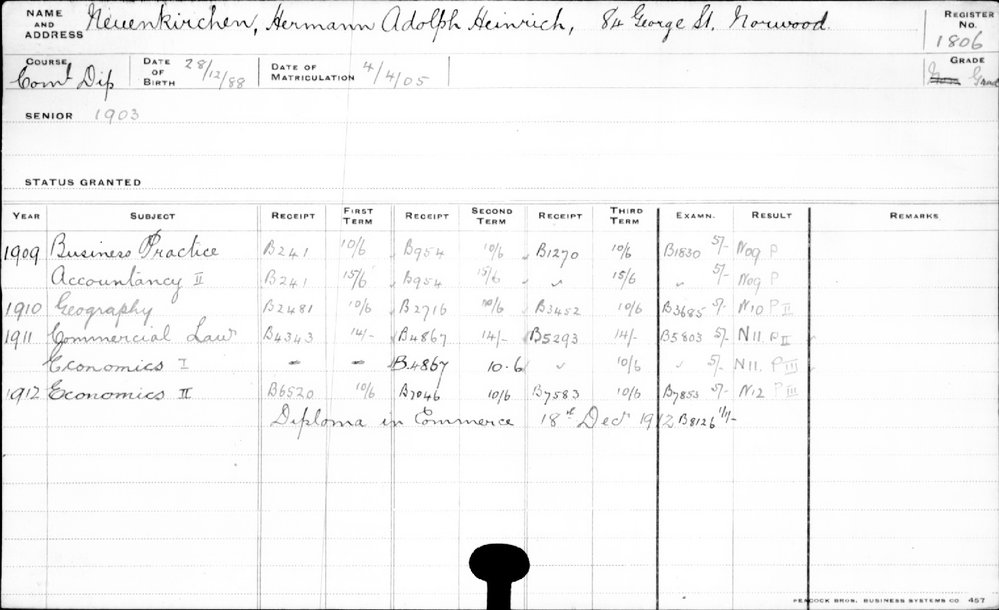 NAME AND ADDRESS Neuenkirchen, Hermann Adolph Heinrich, 84 George St. Norwood. REGISTER No. 1806
COURSE Coml Dip DATE OF BIRTH 28/12/88 DATE OF MATRICULATION 4/4/05 GRADE Grad
SENIOR 1903
STATUS GRANTED
YEAR SUBJECT RECEIPT FIRST TERM RECEIPT SECOND TERM RECEIPT THIRD TERM EXAMN. RESULT REMARKS
1909 Business Practice B241 10/6 B954 10/6 B1270 10/6 B1830 5/- N09 P
Accountancy II B241 15/6 B954 15/6 " 15/6 " 5/- N09 P
1910 Geography B2481 10/6 B2716 10/6 B3452 10/6 B3685 5/- N10 P II
1911 Commercial Law B4343 14/- B4867 14/- B5293 14/- B5803 5/- N11. P II
Economics I - - B4867 10.6 " 10/6 " 5/- N11. P III
1912 Economics II B6520 10/6 B7046 10/6 B7583 10/6 B7853 5/- N12 P III
Diploma in Commerce 18th Decr 1912 B8126
PEACOCK BROS. BUSINESS SYSTEMS CO 457